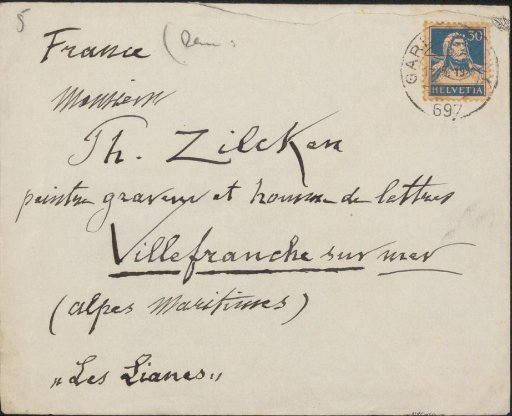 5
France
30
GAR
HELVETIA
697
Monsieur
Th. Zilcken
peintre graveur et homme de lettres
Villefranche sur mer
(Alpes Maritimes)
"Les Lianes"